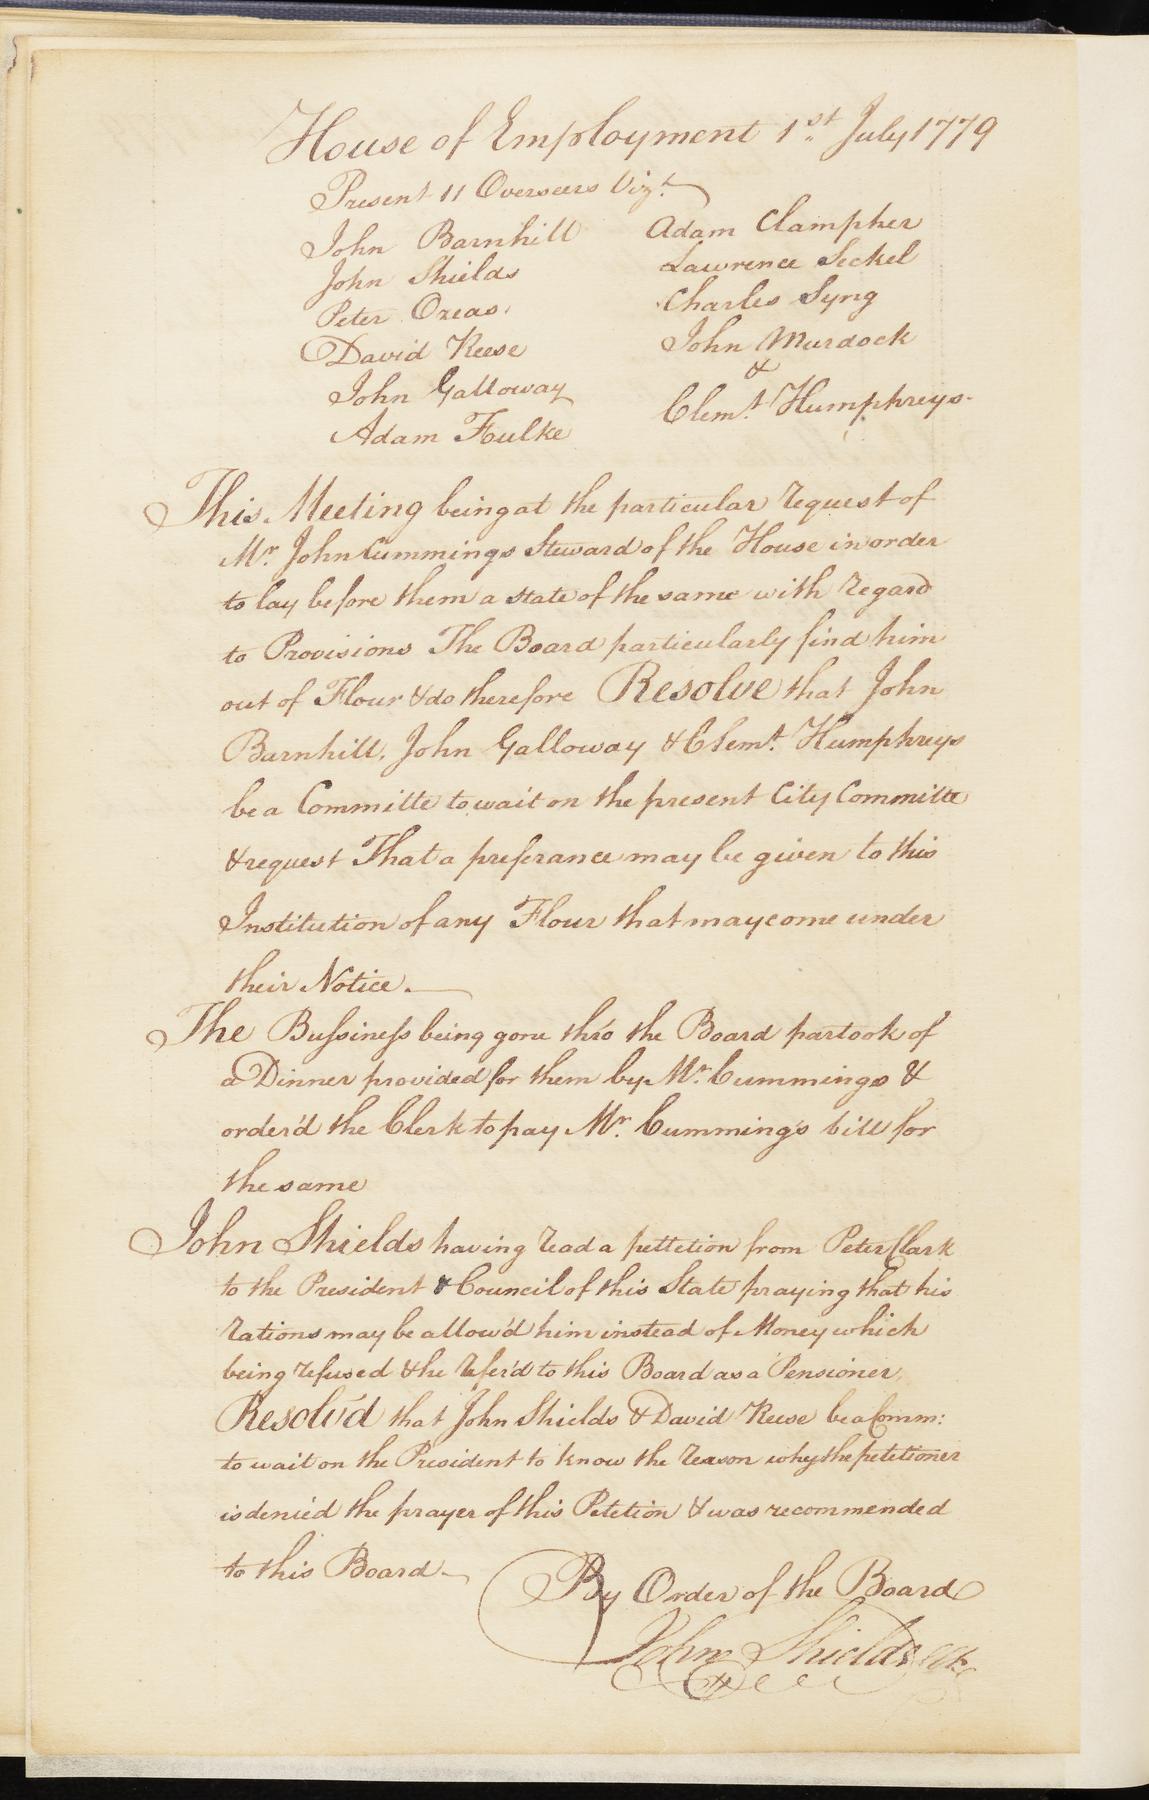 House of Employment 1st July 1779
Present 11 Overseers Vizt.
John Barnhill
John Shields
Peter Ozeas.
David Reese
John Galloway
Adam Foulke
Adam Clampher
Lawrence Seckel
Charles Syng
John Murdock
&
Clemt. Humphreys.
This Meeting being at the particular request of
Mr. John Cummings Steward of the House in order
to lay before them a state of the same with regard
to Provisions The Board particularly find him
out of Flour & do therefore Resolve that John
Barnhill, John Galloway & Clemt. Humphreys
be a Committe to wait on the present City Committe
& request That a preferance may be given to this
Institution of any Flour that may come under
their Notice.
The Bussiness being gone thro' the Board partook of
a Dinner provided for them by Mr. Cummings &
order'd the Clerk to pay Mr. Cumming's bill for
the same
John Shields having read a pettetion from Peter Clark
to the President & Council of this State praying that his
rations may be allow'd him instead of Money which
being refused & he refer'd to this Board as a Pensioner,
Resolv'd that John Shields & David Reese be a Comm:
to wait on the President to know the reason why the petetioner
is denied the prayer of this Petetion & was recommended
to this Board
By Order of the Board
John Shields